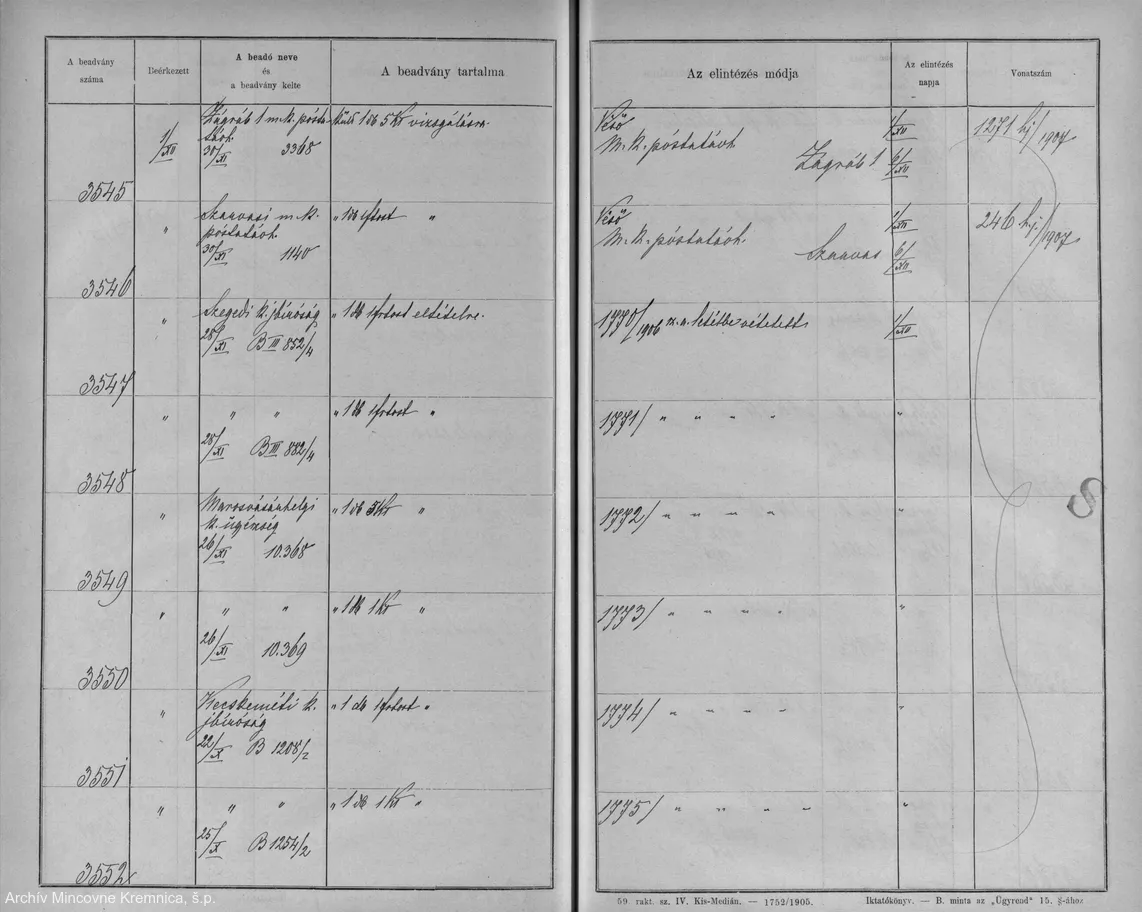 A beadvány
száma
Beérkezett
A beadó neve
és
a beadvány kelte
A beadvány tartalma
Az elintézés módja
Az elintézés
napja
Vonatszám
3545
1/XII
Zágráb 1 m. k. posta-
30/XI 3368
küld 1 db 5 Kr vizsgálásra
Véső
M. k. póstatávh.
Zágráb 1
1/XII
6/XII
1271 hj/1907
3546
"
Szarvasi m. k.
póstatávh.
30/XI 1140
" 1 db 1 frtost "
Véső
M. k. póstatávh.
Szarvas
1/XII
6/XII
246 hj/1907
3547
"
Szegedi k. jbíróság
28/XI B III 852/4
" 1 db 1 frtost eltételre.
1770/1906 sz. a. letétbe vétetett
1/XII
3548
" " "
28/XI B III 882/4
" 1 db 1 frtost "
1771/ " " " "
"
3549
"
Marosvásárhelyi
k. ügyészség
26/XI 10.368
" 1 db 5 Kr "
1772/ " " " "
"
3550
" " "
26/XI 10.369
" 1 db 1 Kr "
1773/ " " " "
"
3551
"
Kecskeméti k.
jbíróság
22/X B 1208/2
" 1 db 1 frtost "
1774/ " " " "
"
3552
" " "
25/X B 1254/2
" 1 db 1 Kr "
1775/ " " " "
"
8
59. rakt. sz. IV. Kis-Medián. — 1752/1905.
Iktatókönyv. — B. minta az „Ügyrend" 15. §-ához
Archív Mincovne Kremnica, š.p.